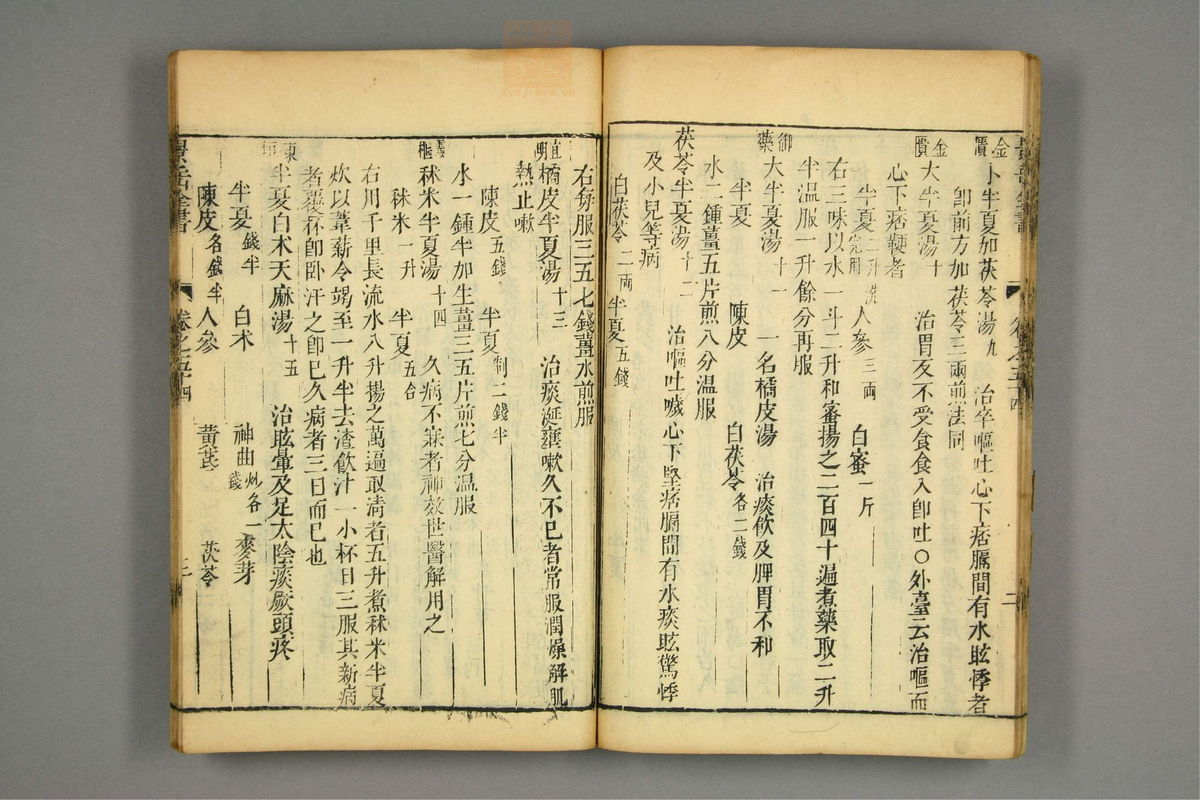 金匱 小半夏加茯苓湯九 治卒嘔吐心下痞膈間有水眩悸者
即前方加茯苓三兩煎法同
金匱 大半夏湯十 治胃反不受食食入即吐〇外臺云治嘔而
心下痞鞕者
半夏二升洗完用 人參三兩 白蜜一斤
右三味以水一斗二升和蜜揚之二百四十遍煮藥取二升
半溫服一升餘分再服
御藥 大半夏湯十一 一名橘皮湯 治痰飲及脾胃不和
半夏 陳皮 白茯苓各二錢
水二鍾薑五片煎八分溫服
茯苓半夏湯十二 治嘔吐噦心下堅痞膈間有水痰眩驚悸
及小兒等病
白茯苓二兩 半夏五錢
右每服三五七錢薑水煎服
直明 橘皮半夏湯十三 治痰涎壅嗽久不已者常服潤燥解肌
熱止嗽
陳皮五錢 半夏制二錢半
水一鍾半加生薑三五片煎七分溫服
秫米半夏湯十四 久病不寐者神效世醫解用之
秫米一升 半夏五合
右用千里長流水八升揚之萬遍取清者五升煮秫米半夏
炊以葦薪令竭至一升半去渣飲汁一小杯日三服其新病
者覆杯即臥汗之即已久病者三日而已也
東垣 半夏白术天麻湯十五 治眩暈及足太陰痰厥頭疼
半夏錢半 白术 神曲炒各一錢 麥芽
陳皮各錢半 人參 黃芪 茯苓
景岳全書 卷之五十四